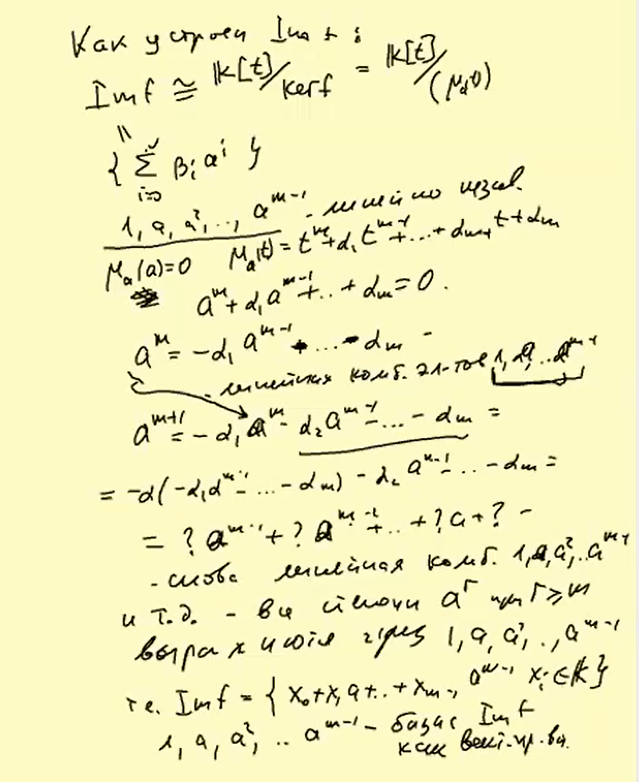 Как устроен Im f :
Im f ≅ K[t]/Ker f = K[t]/(μ_a(t))
||
{ Σ_{i=0} β_i a^i }
1, a, a², .., a^{m-1} - линейно незав.
μ_a(a)=0 μ_a(t) = t^m + α_1 t^{m-1} + ... + α_{m-1} t + α_m
a^m + α_1 a^{m-1} + .. + α_m = 0.
a^m = -α_1 a^{m-1} - ... - α_m -
- линейная комб. эл-тов 1, a, .. a^{m-1}
a^{m+1} = -α_1 a^m - α_2 a^{m-1} - ... - α_m =
= -α(-α_1 a^{m-1} - ... - α_m) - α_2 a^{m-1} - .. - α_m =
= ? a^{m-1} + ? a^{m-2} + .. + ? a + ? -
- снова линейная комб. 1, a, a², .. a^{m-1}
и т.д. - все степени a^r при r ≥ m
выражаются через 1, a, a², .., a^{m-1}
т.е. Im f = { x_0 + x_1 a + .. + x_{m-1} a^{m-1} x_i ∈ K }
1, a, a², .. a^{m-1} - базис Im f
как вект. пр-ва.